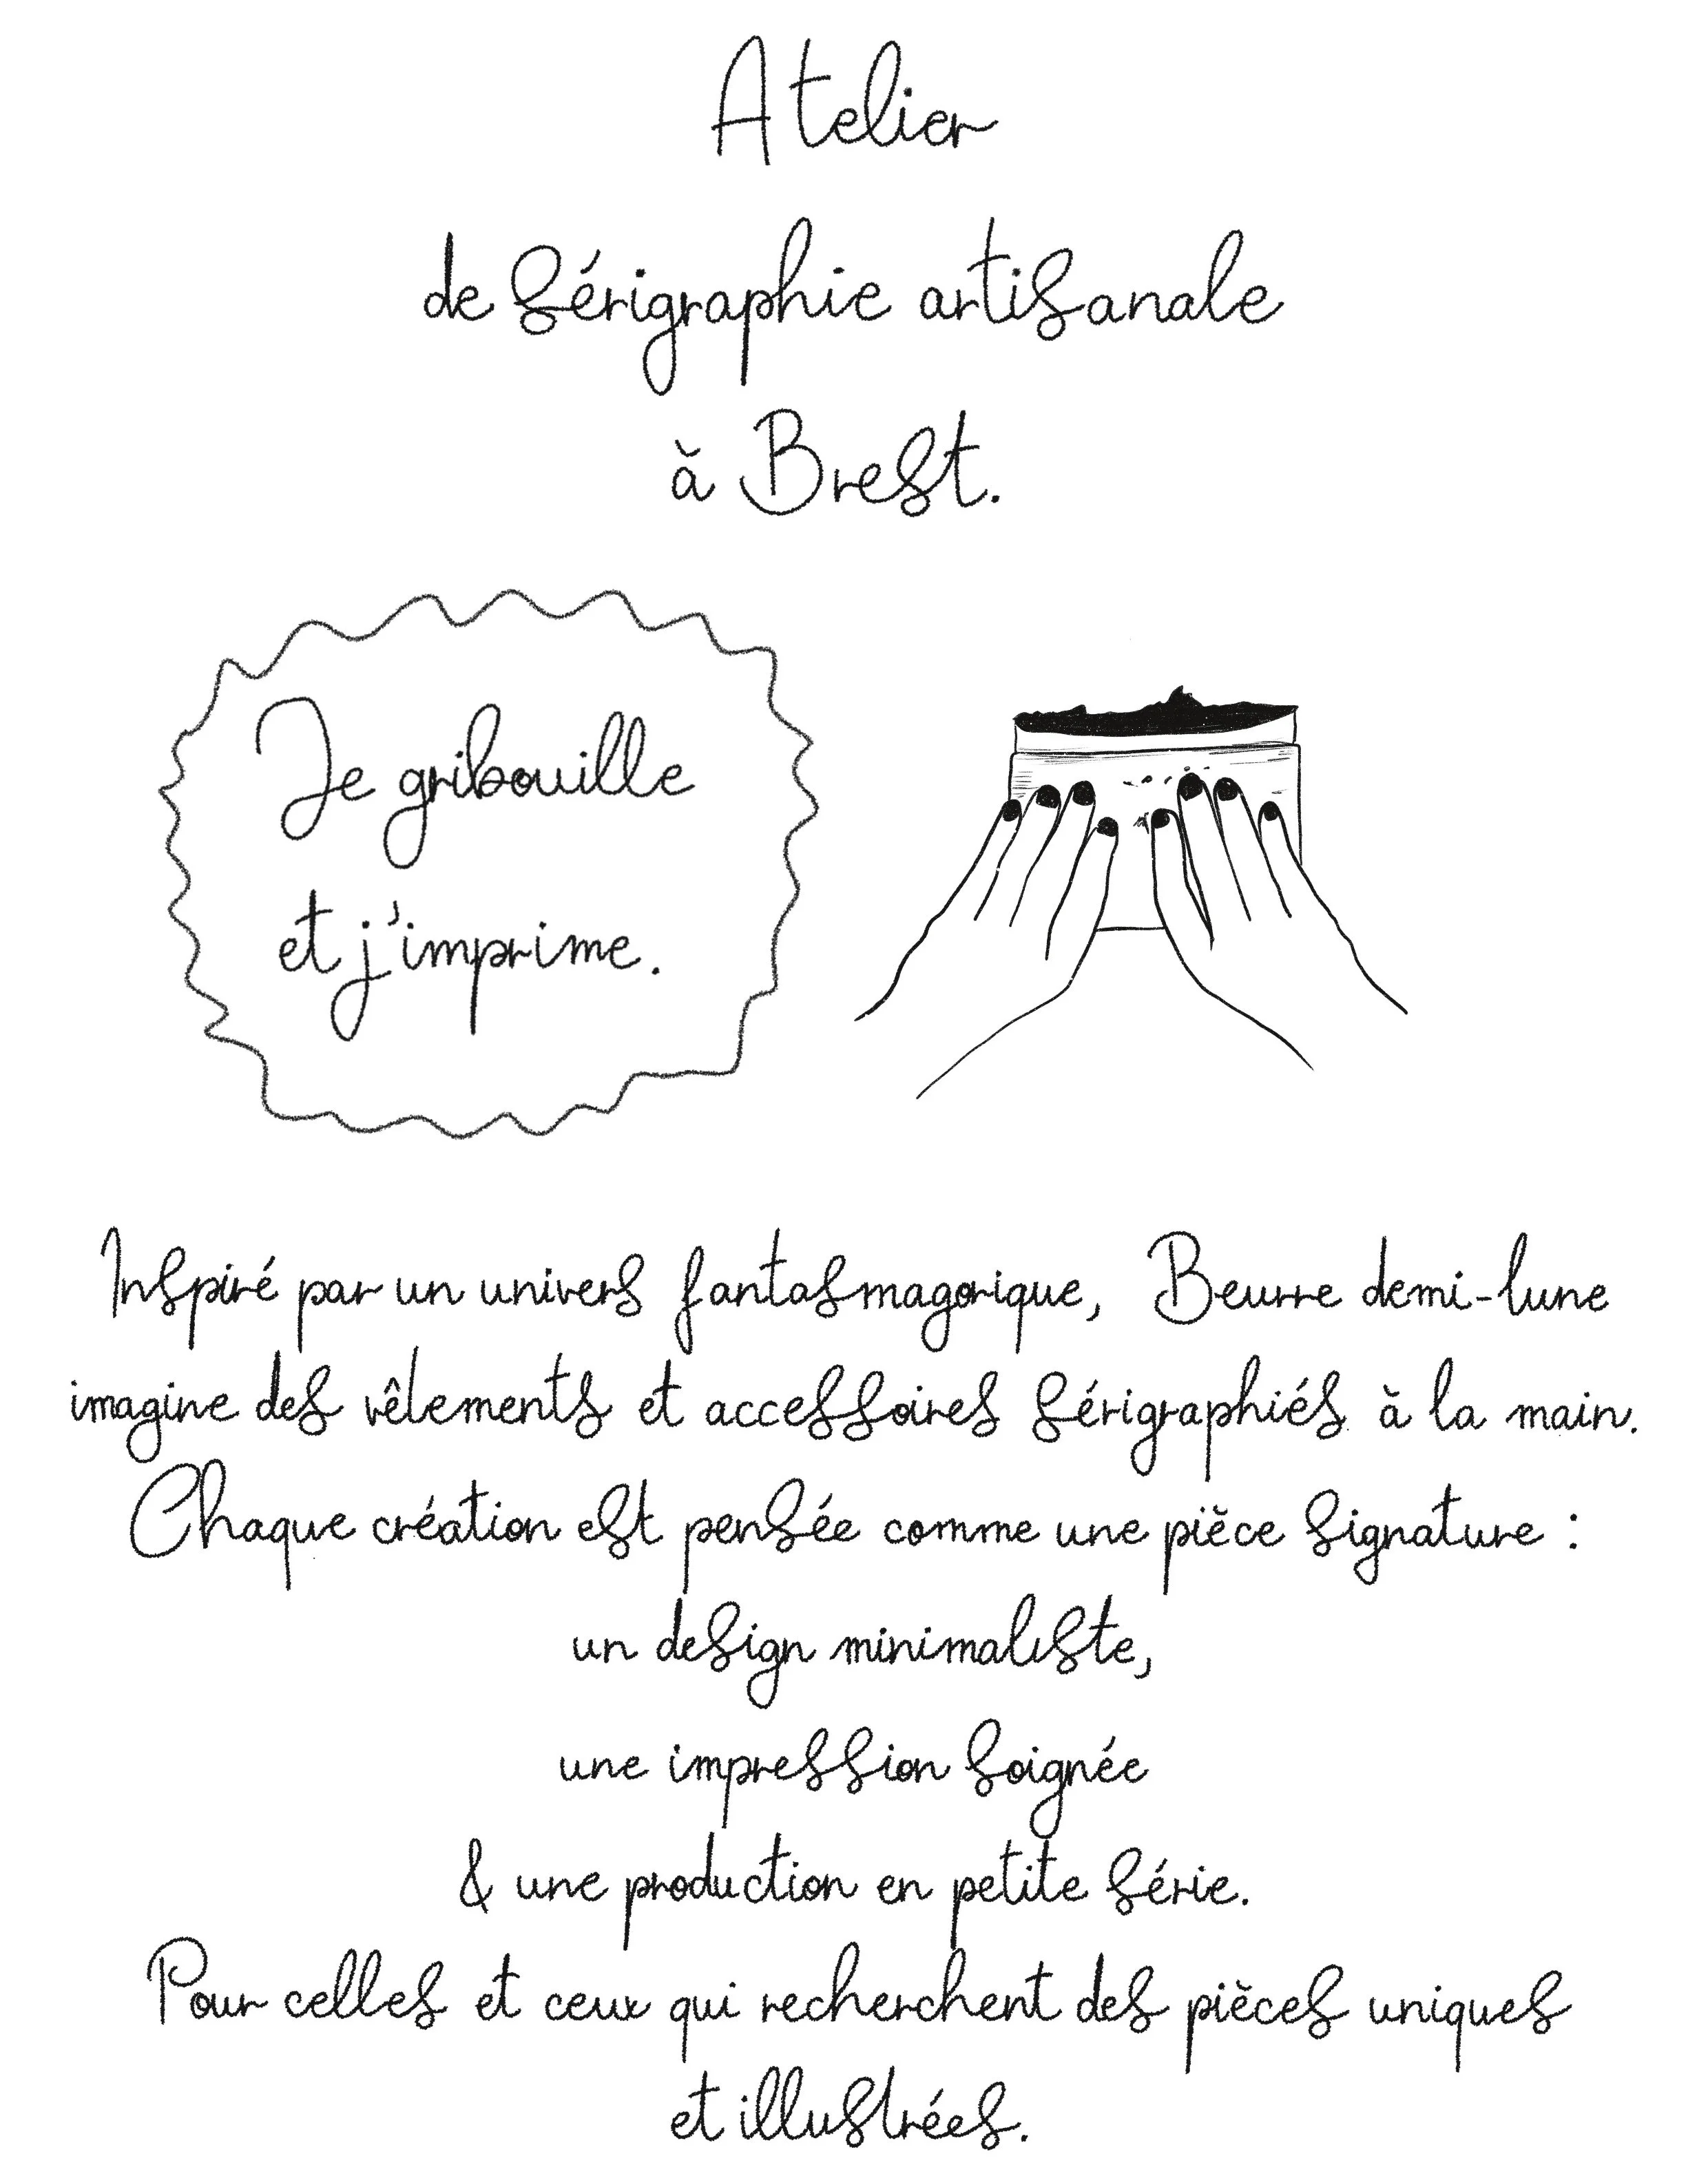 Atelier
de sérigraphie artisanale
à Brest.
Je gribouille
et j'imprime.
Inspiré par un univers fantasmagorique, Beurre demi-lune
imagine des vêtements et accessoires sérigraphiés à la main.
Chaque création est pensée comme une pièce signature :
un design minimaliste,
une impression soignée
& une production en petite série.
Pour celles et ceux qui recherchent des pièces uniques
et illustrées.